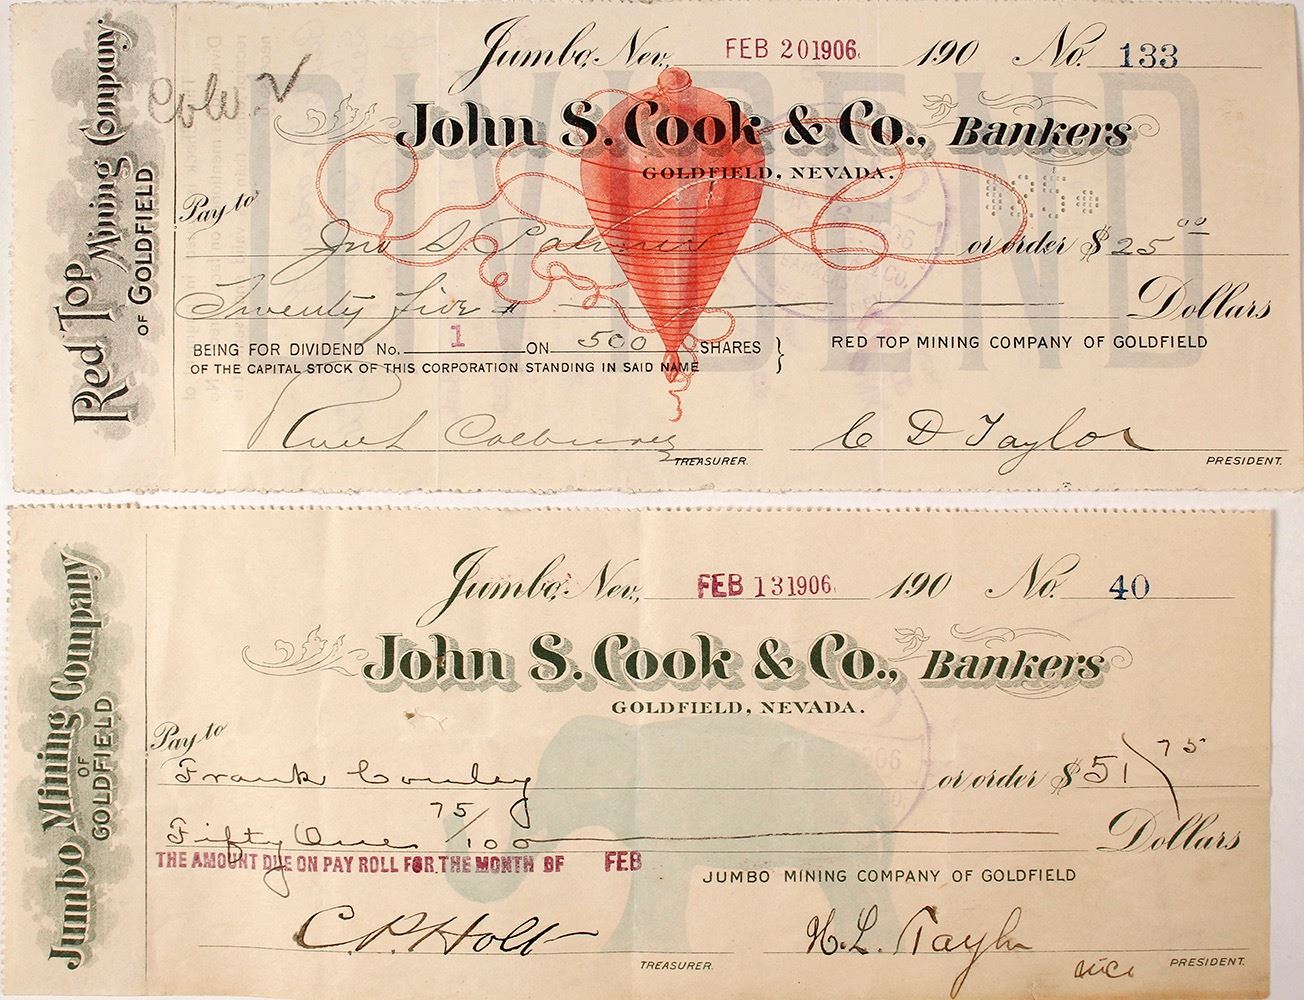 Red Top Mining Company
OF GOLDFIELD
Jumbo, Nev., FEB 20 1906. 190 No. 133
DIVIDEND
John S. Cook & Co., Bankers
GOLDFIELD, NEVADA.
Pay to
Jno S. Palmer or order $ 25 00
Twenty five # Dollars
BEING FOR DIVIDEND No. 1 ON 500 SHARES } RED TOP MINING COMPANY OF GOLDFIELD
OF THE CAPITAL STOCK OF THIS CORPORATION STANDING IN SAID NAME
C D Taylor
TREASURER. PRESIDENT.
Jumbo Mining Company
OF
GOLDFIELD
Jumbo, Nev., FEB 13 1906. 190 No. 40
John S. Cook & Co., Bankers
GOLDFIELD, NEVADA.
Pay to
Frank Conley or order $ 51 75
Fifty One 75/100 Dollars
THE AMOUNT DUE ON PAY ROLL FOR THE MONTH OF FEB
JUMBO MINING COMPANY OF GOLDFIELD
C.P. Holt H.L. Taylor
TREASURER. vice PRESIDENT.